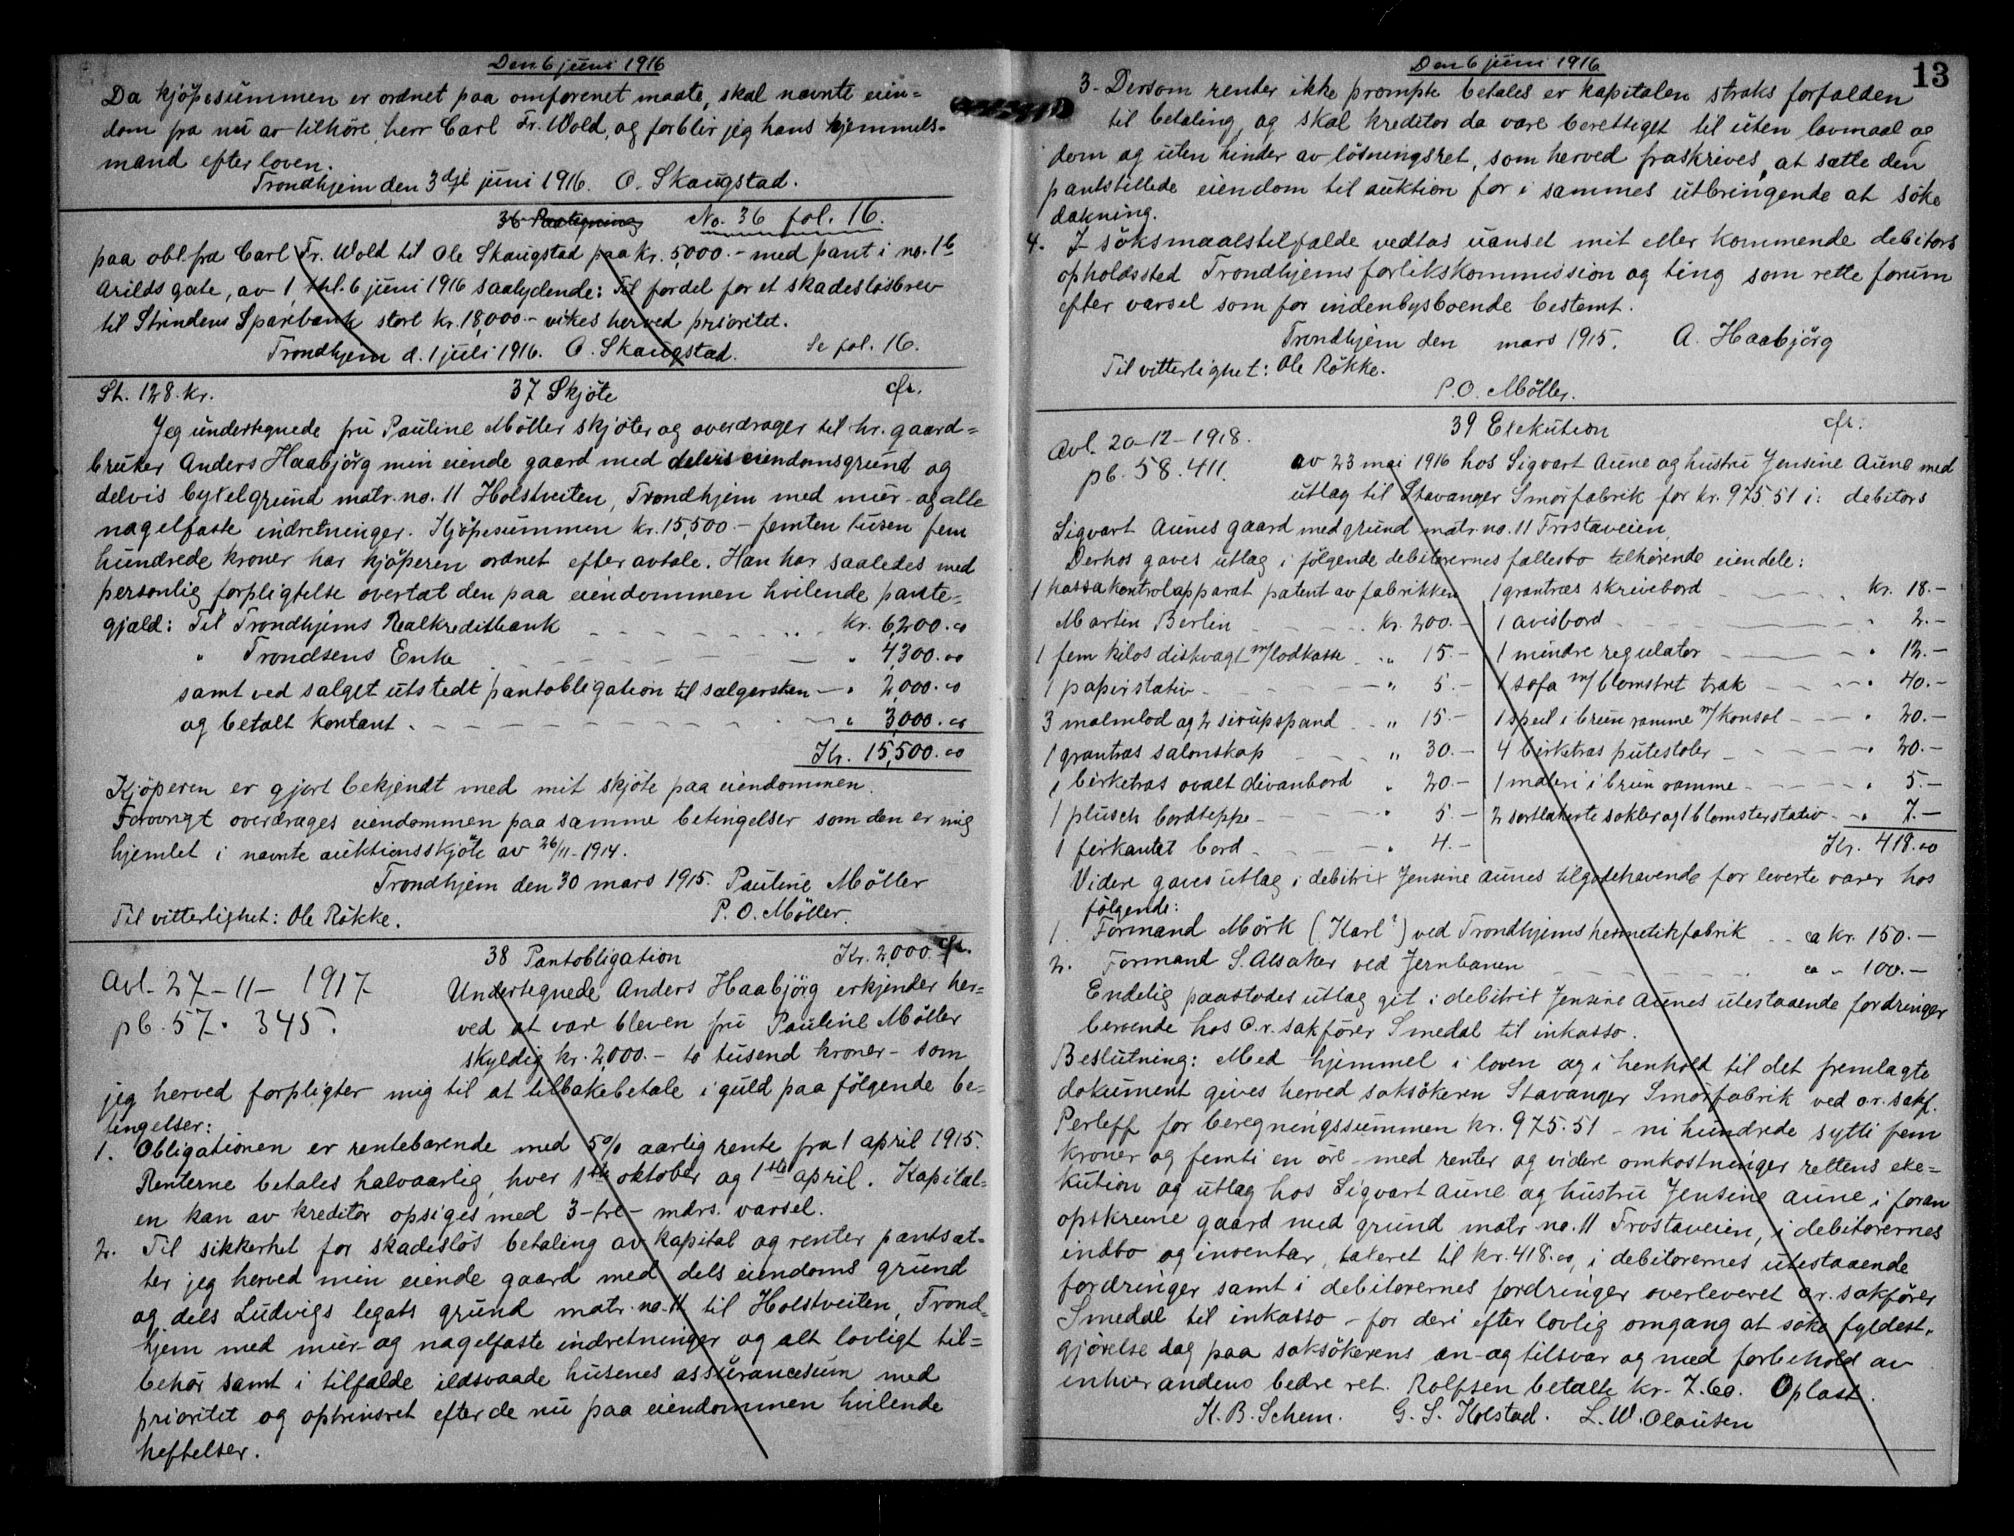 Den 6 juni 1916
Da kjöpesummen er ordnet paa omforenet maate, skal nævnte eien=
dom fra nu av tilhöre herr Carl Fr. Wold, og forblir jeg hans hjemmels-
mand efter loven.
Trondhjem den 3dje juni 1916. O. Skaugstad.
36 Paategning No. 36 fol. 16.
paa obl. fra Carl Fr. Wold til Ole Skaugstad paa kr. 5,000.- med pant i no. 16
Arilds gate, av 1, thl. 6 juni 1916 saalydende: Til fordel for et skadeslösbrev
til Strindens Sparebank stort kr. 18,000.- vikes herved prioritet.
Trondhjem d. 1 juli 1916. O. Skaugstad. Se fol. 16.
St. 128 kr. 37 Skjöte cfr.
Jeg undertegnede fru Pauline Möller skjöter og overdrager til hr. gaard=
bruker Anders Haabjörg min eiende gaard med delvis eiendomsgrund og
delvis bykselgrund matr. no. 11 Holstveiten, Trondhjem med mur- og alle
nagelfaste indretninger. Kjöpesummen kr. 15,500.- femten tusen fem
hundrede kroner har kjöperen ordnet efter avtale. Han har saaledes med
personlig forpligtelse overtat den paa eiendommen hvilende pante=
gjæld: Til Trondhjems Realkreditbank kr. 6,200.00
" Trondsens Enke " 4,300.00
samt ved salget utstedt pantobligation til sælgersken - " 2,000.00
og betalt kontant. " 3,000.00
Kr. 15,500.00
Kjöperen er gjort bekjendt med mit skjöte paa eiendommen.
Forövrigt overdrages eiendommen paa samme betingelser som den er mig
hjemlet i nævnte auktionsskjöte av 26/11-1914.
Trondhjem den 30 mars 1915. Pauline Möller
Til vitterlighet: Ole Rökke. P. O. Möller.
38 Pantobligation Kr. 2,000.- cfr.
Avl. 27-11-1917
pb. 57. 345.
Undertegnede Anders Haabjörg erkjender her=
ved at være bleven fru Pauline Möller
skyldig kr. 2,000.- to tusend kroner - som
jeg herved forpligter mig til at tilbakebetale i guld paa fölgende be=
tingelser:
1. Obligationen er rentebærende med 5% aarlig rente fra 1 april 1915.
Renterne betales halvaarlig, hver 1ste oktober og 1ste april. Kapital-
en kan av kreditor opsiges med 3-tre- mdrs. varsel.
2. Til sikkerhet for skadeslös betaling av kapital og renter pantsæt-
ter jeg herved min eiende gaard med dels eiendoms grund
og dels Ludvigs legats grund matr. no. 11 til Holstveiten, Trond-
hjem med mur- og nagelfaste indretninger og alt lovligt til=
behör samt i tilfælde ildsvaade husenes assürancesum med
prioritet og optrinsret efter de nu paa eiendommen hvilende
heftelser.
Den 6 juni 1916
13
3- Dersom renter ikke prompte betales er kapitalen straks forfalden
til betaling, og skal kreditor da være berettiget til uten lovmaal og
dom og uten hinder av lösningsret, som herved fraskrives, at sætte den
pantstillede eiendom til auktion for i sammes utbringende at söke
dækning.
4. I söksmaalstilfælde vedtas uanset mit eller kommende debitors
opholdssted Trondhjems forlikskommission og ting som rette forum
efter varsel som for indenbysboende bestemt.
Trondhjem den mars 1915. A. Haabjörg
Til vitterlighet: Ole Rökke.
P. O. Möller.
39 Exekution cfr:
Avl. 20-12-1918.
pb. 58. 411.
av 23 mai 1916 hos Sigvart Aune og hustru Jensine Aune med
utlæg til Stavanger Smörfabrik for kr. 975.51 i: debitors
Sigvart Aunes gaard med grund matr. no. 11 Frostaveien.
Derhos gaves utlæg i fölgende debitorernes fællesbo tilhörende eiendele:
1 kassakontrolapparat patent av fabrikken
Martin Berlin kr. 200.-
1 fem kilos diskvægt m/lodkasse " 15.-
1 papirstativ " 5.-
3 malmlod og 2 sirupspand " 15.-
1 grantræs salonskap " 30.-
1 birketræs ovalt divanbord " 20.-
1 plüsch bordteppe " 5.-
1 firkantet bord " 4.-
1 grantræs skrivebord kr. 18.-
1 avisbord " 2.-
1 mindre regulator " 12.-
1 sofa m/blomstret træk " 40.-
1 speil i brun ramme m/konsol " 20.-
4 birketræs putestoler " 20.-
1 maleri i brun ramme " 5.-
2 sortlakerte sokler og 1 blomsterstativ " 7.-
Kr. 418.00
Videre gaves utlæg i debitrix Jensine Aunes tilgodehavende for leverte varer hos
fölgende:
1. Formand Mörk (Karl?) ved Trondhjems hermetikfabrik ca kr. 150.-
2. Formand S. Alsaker ved Jernbanen ca " 100.-
Endelig paastodes utlæg git i debitrix Jensine Aunes utestaaende fordringer
beroende hos o.r. sakförer Smedal til inkasso.
Beslutning: Med hjemmel i loven og i henhold til det fremlagte
dokument gives herved saksökeren Stavanger Smörfabrik ved o.r. sakf.
Perleff for beregningssummen kr. 975.51 - ni hundrede sytti fem
kroner og femti en öre - med renter og videre omkostninger rettens exe=
kution og utlæg hos Sigvart Aune og hustru Jensine Aune i foran
opskrevne gaard med grund matr. no. 11 Frostaveien, i debitorernes
indbo og inventar, taxeret til kr. 418.00, i debitorernes utestaaende
fordringer samt i debitorernes fordringer overleveret o.r. sakförer
Smedal til inkasso - for deri efter lovlig omgang at söke fyldest-
gjörelse dog paa saksökerens an- og tilsvar og med forbehold av
enhver andens bedre ret. Rolfsen betalte kr. 7.60. Oplæst.
K. B. Schem. G. S. Kolstad. L. W. Olausen